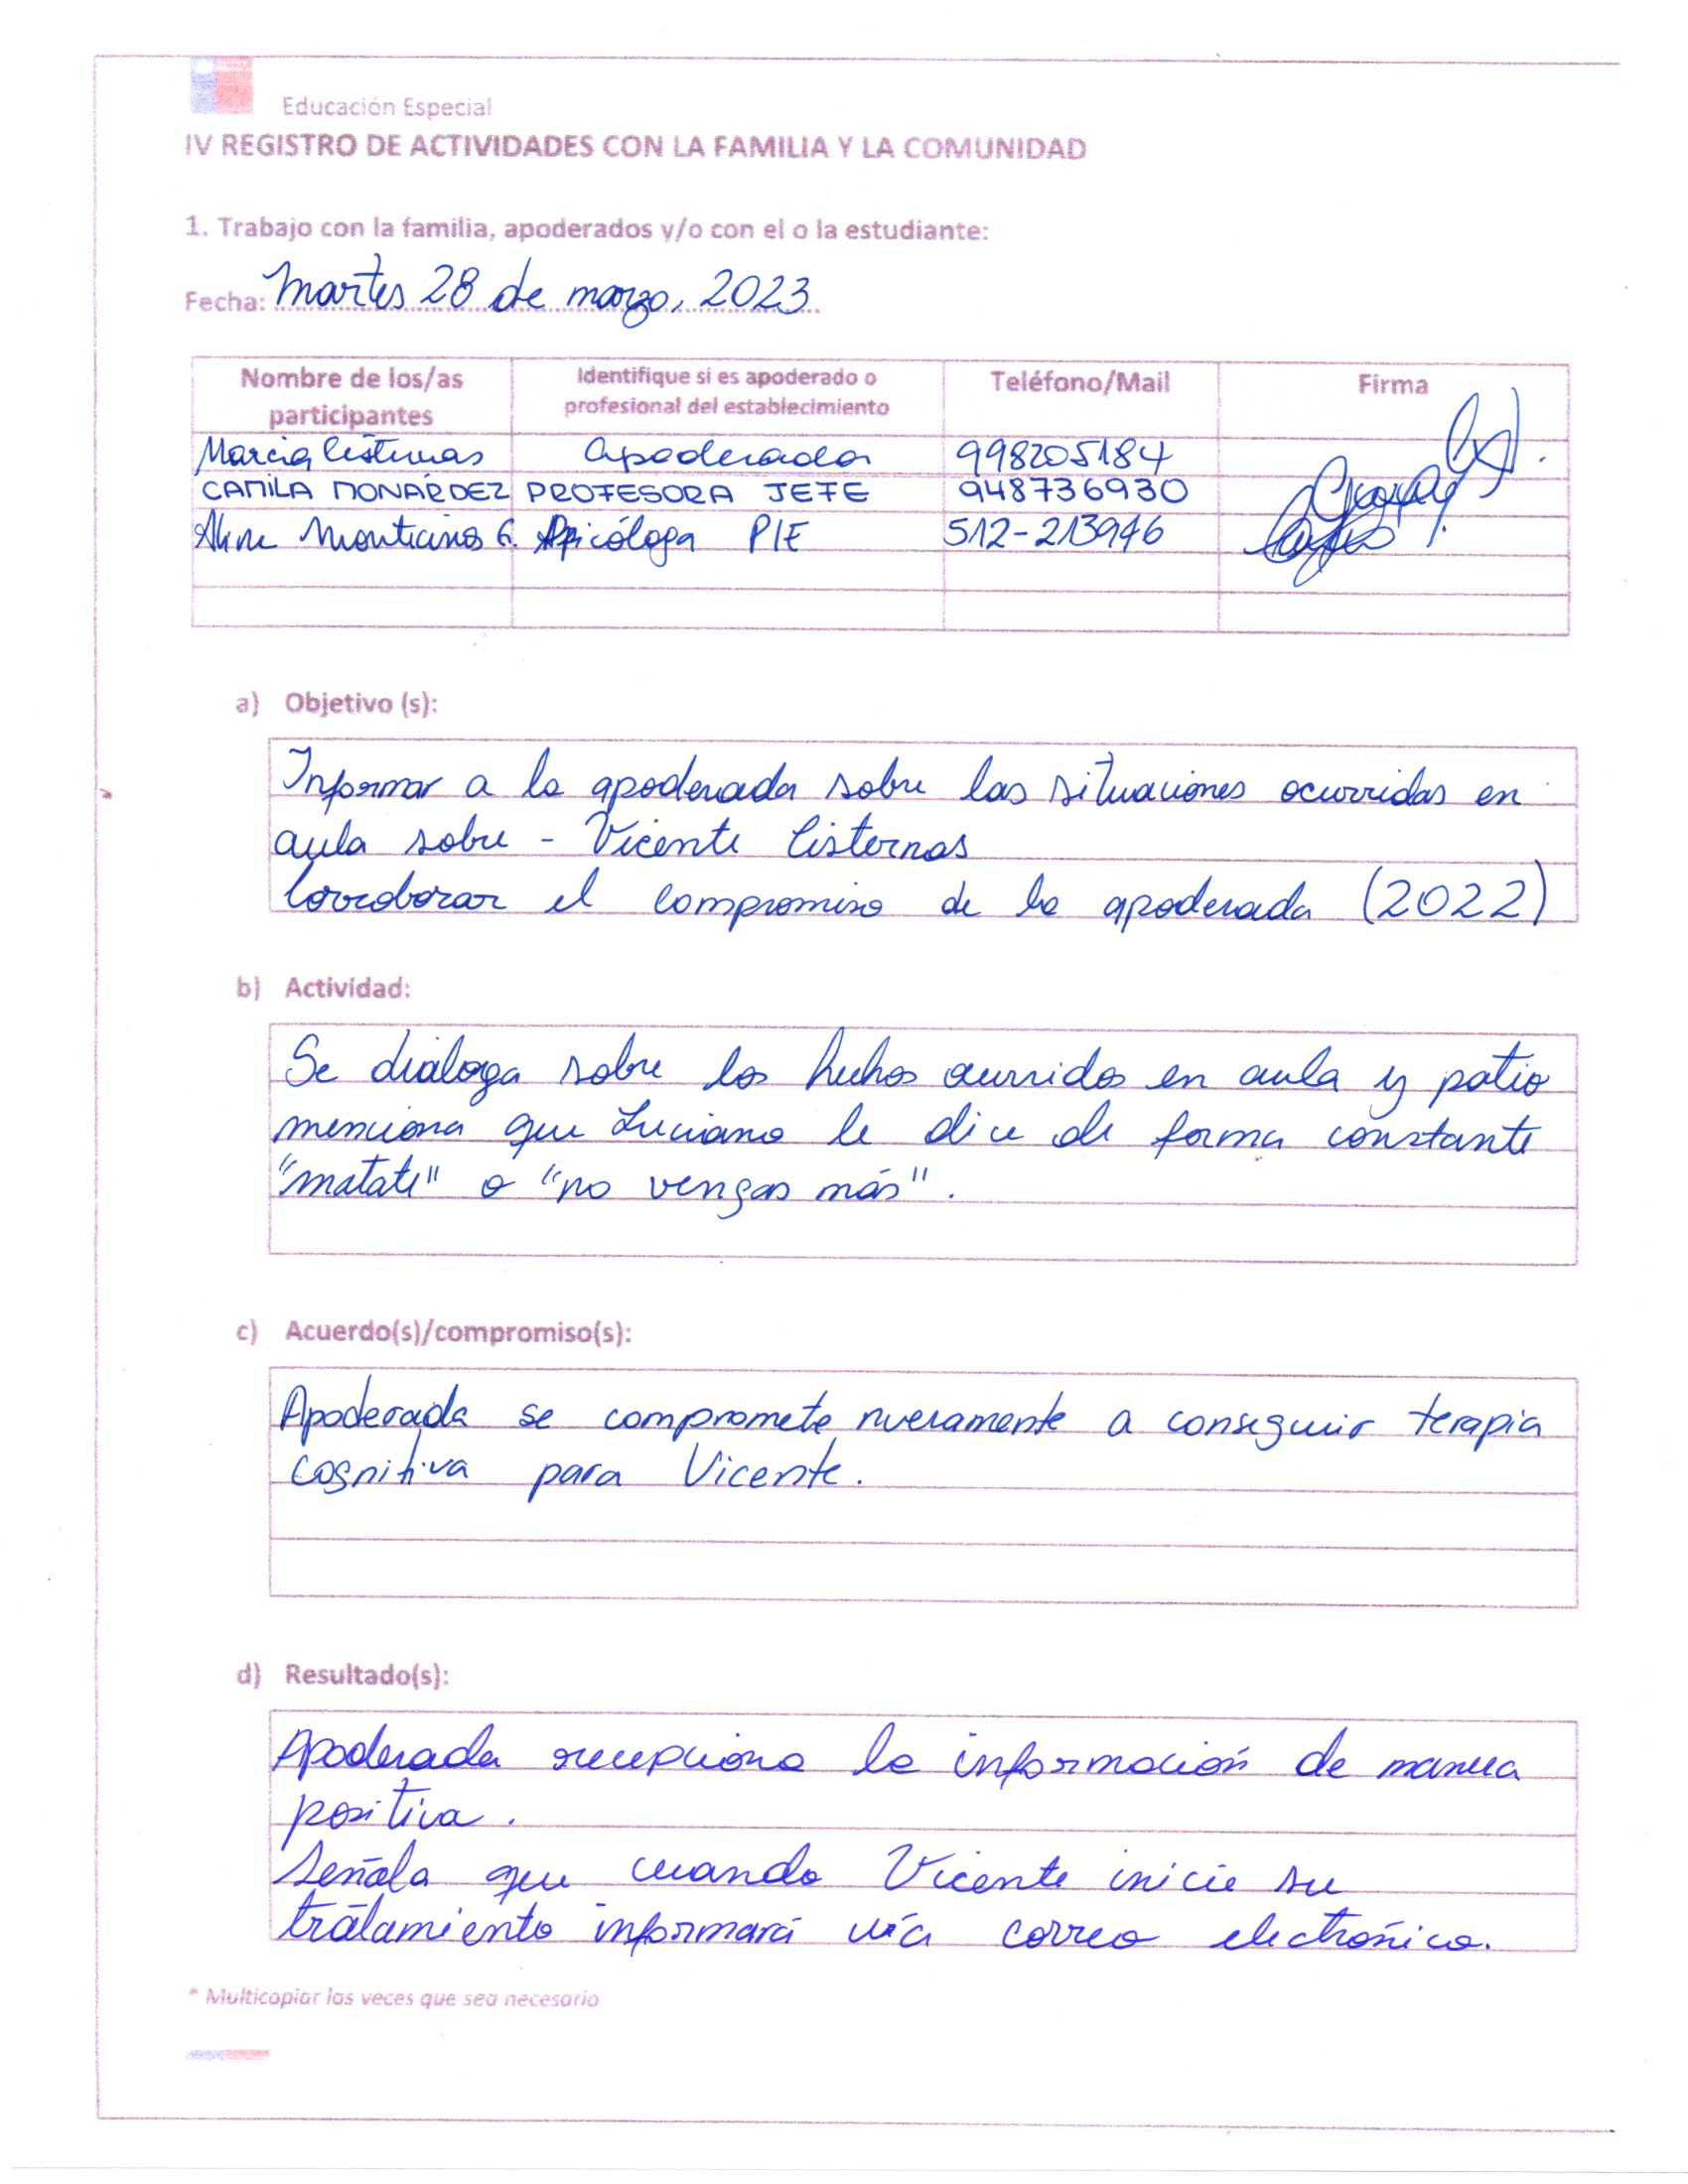 Educación Especial
IV REGISTRO DE ACTIVIDADES CON LA FAMILIA Y LA COMUNIDAD
1. Trabajo con la familia, apoderados y/o con el o la estudiante:
Fecha: Martes 28 de marzo, 2023
Nombre de los/as participantes Identifique si es apoderado o profesional del establecimiento Teléfono/Mail Firma
Marcia Cisternas apoderada 998205184
CAMILA MONARDEZ PROFESORA JEFE 948736930
Monticinos G. Psicóloga PIE 512-213946
a) Objetivo (s):
Informar a la apoderada sobre las situaciones ocurridas en
aula sobre - Vicente Cisternas
Corroborar el compromiso de la apoderada (2022)
b) Actividad:
Se dialoga sobre los hechos ocurridos en aula y patio
menciona que Luciano le dice de forma constante
"matate" o "no vengas más".
c) Acuerdo(s)/compromiso(s):
Apoderada se compromete nueramente a conseguir terapia
cognitiva para Vicente.
d) Resultado(s):
Apoderada recepciona la información de manera
positiva.
Señala que cuando Vicente inicie su
tratamiento informará vía correo electrónico.
* Multicopiar las veces que sea necesario